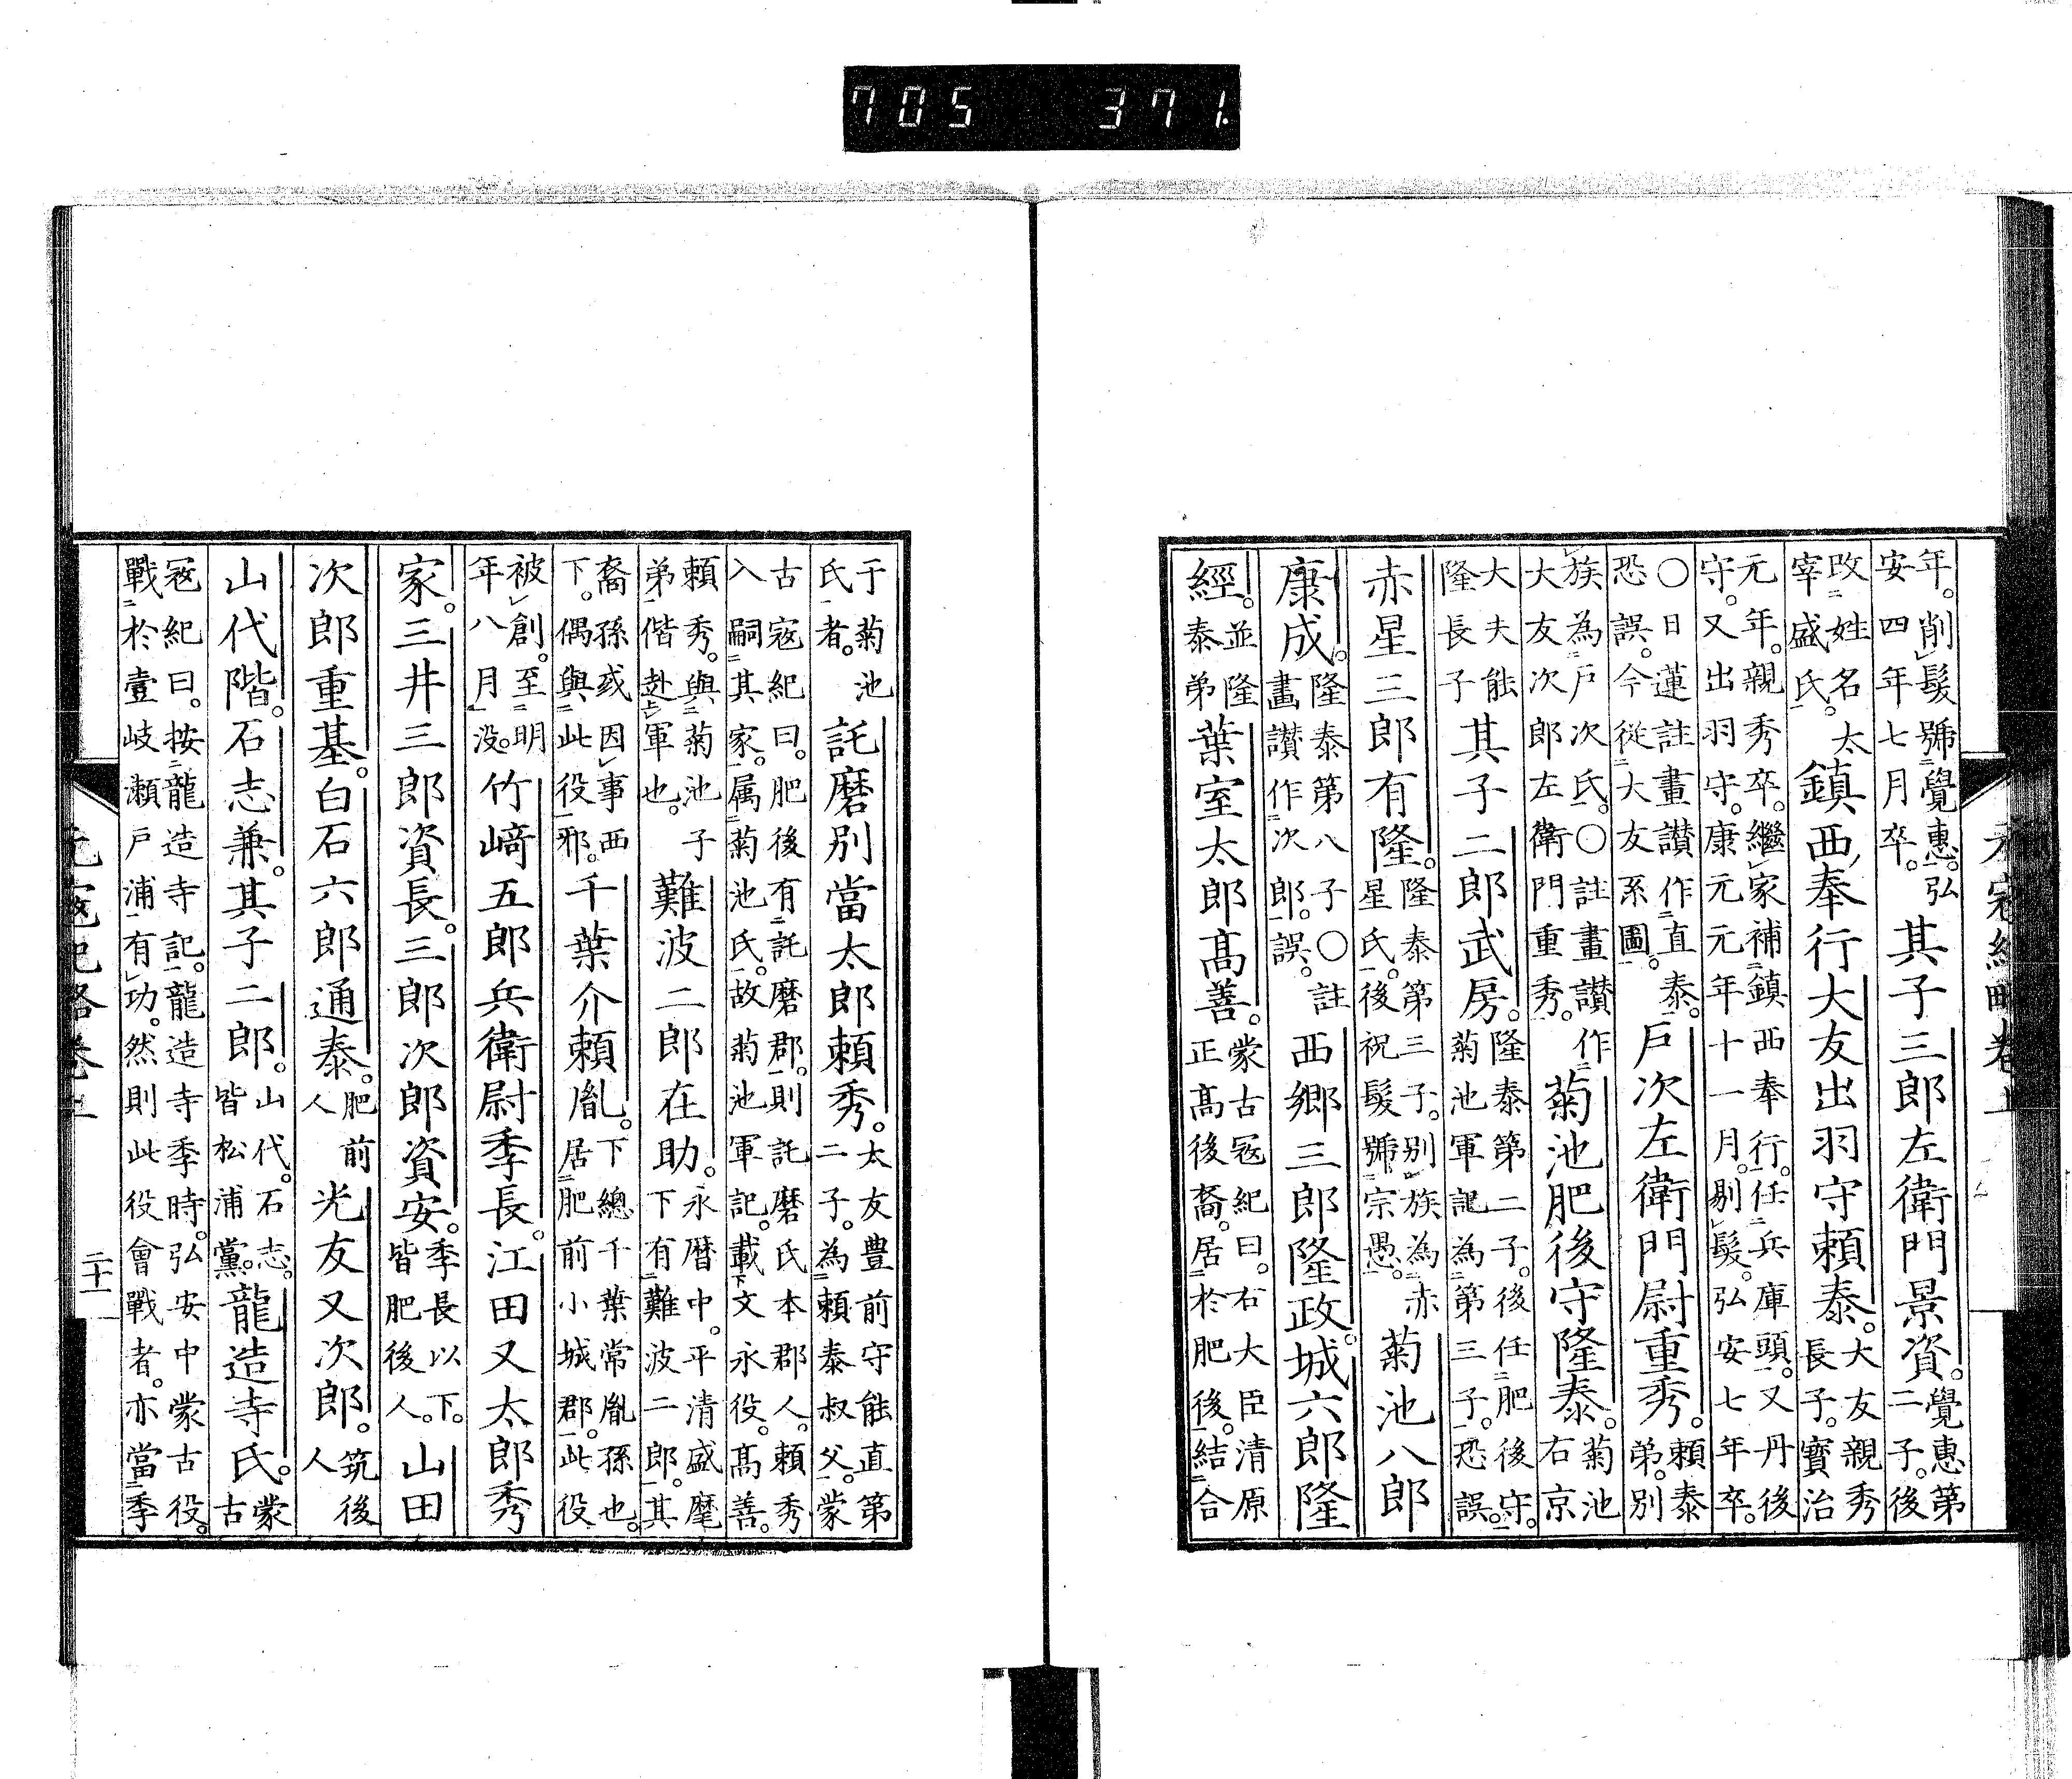 705 371.
年。削髮號覺惠。弘
安四年七月卒。
其子三郎左衛門景資。
覺惠第
二子。後
改姓名太
宰盛氏。
鎮西奉行大友出羽守頼泰。
大友親秀
長子。寶治
元年。親秀卒。繼家補鎮西奉行。任兵庫頭。又丹後
守。又出羽守。康元元年十一月。剔髮。弘安七年卒。
〇日蓮註畫讃作直泰。
恐誤。今從大友系圖。
戸次左衛門尉重秀。
頼泰
弟。别
族為戸次氏。〇註畫讃作
大友次郎左衛門重秀。
菊池肥後守隆泰。
菊池
右京
大夫能
隆長子
其子二郎武房。
隆泰第二子。後任肥後守。
菊池軍記為第三子。恐誤。
赤星三郎有隆。
隆泰第三子。别族為赤
星氏。後祝髮號宗愚。
菊池八郎
康成。
隆泰第八子〇註
畫讃作次郎。誤。
西郷三郎隆政。城六郎隆
經。
並隆
泰弟
葉室太郎髙善。
蒙古寇紀曰。右大臣清原
正髙後裔。居於肥後。結合
元寇紀略卷上
于菊池
氏者。
託磨别當太郎頼秀。
大友豊前守能直第
二子。為頼泰叔父。蒙
古寇紀曰。肥後有託磨郡。則託磨氏本郡人。頼秀
入嗣其家。属菊池氏。故菊池軍記。載文永役。髙善。
頼秀。與菊池子
弟偕赴軍也。
難波二郎在助。
永暦中。平清盛麾
下有難波二郎。其
裔孫或因事西
下。偶與此役邪。
千葉介頼胤。
下總千葉常胤孫也。
居肥前小城郡。此役
被創。至明
年八月没。
竹﨑五郎兵衛尉季長。江田又太郎秀
家。三井三郎資長。三郎次郎資安。
季長以下。
皆肥後人。
山田
次郎重基。白石六郎通泰。
肥前
人
光友又次郎。
筑後
人
山代階。石志兼。其子二郎。
山代。石志。
皆松浦黨。
龍造寺氏。
蒙
古
寇紀曰。按龍造寺記。龍造寺季時。弘安中蒙古役。
戰於壹岐瀬戸浦有功。然則此役會戰者。亦當季
元寇紀略卷上
二十一